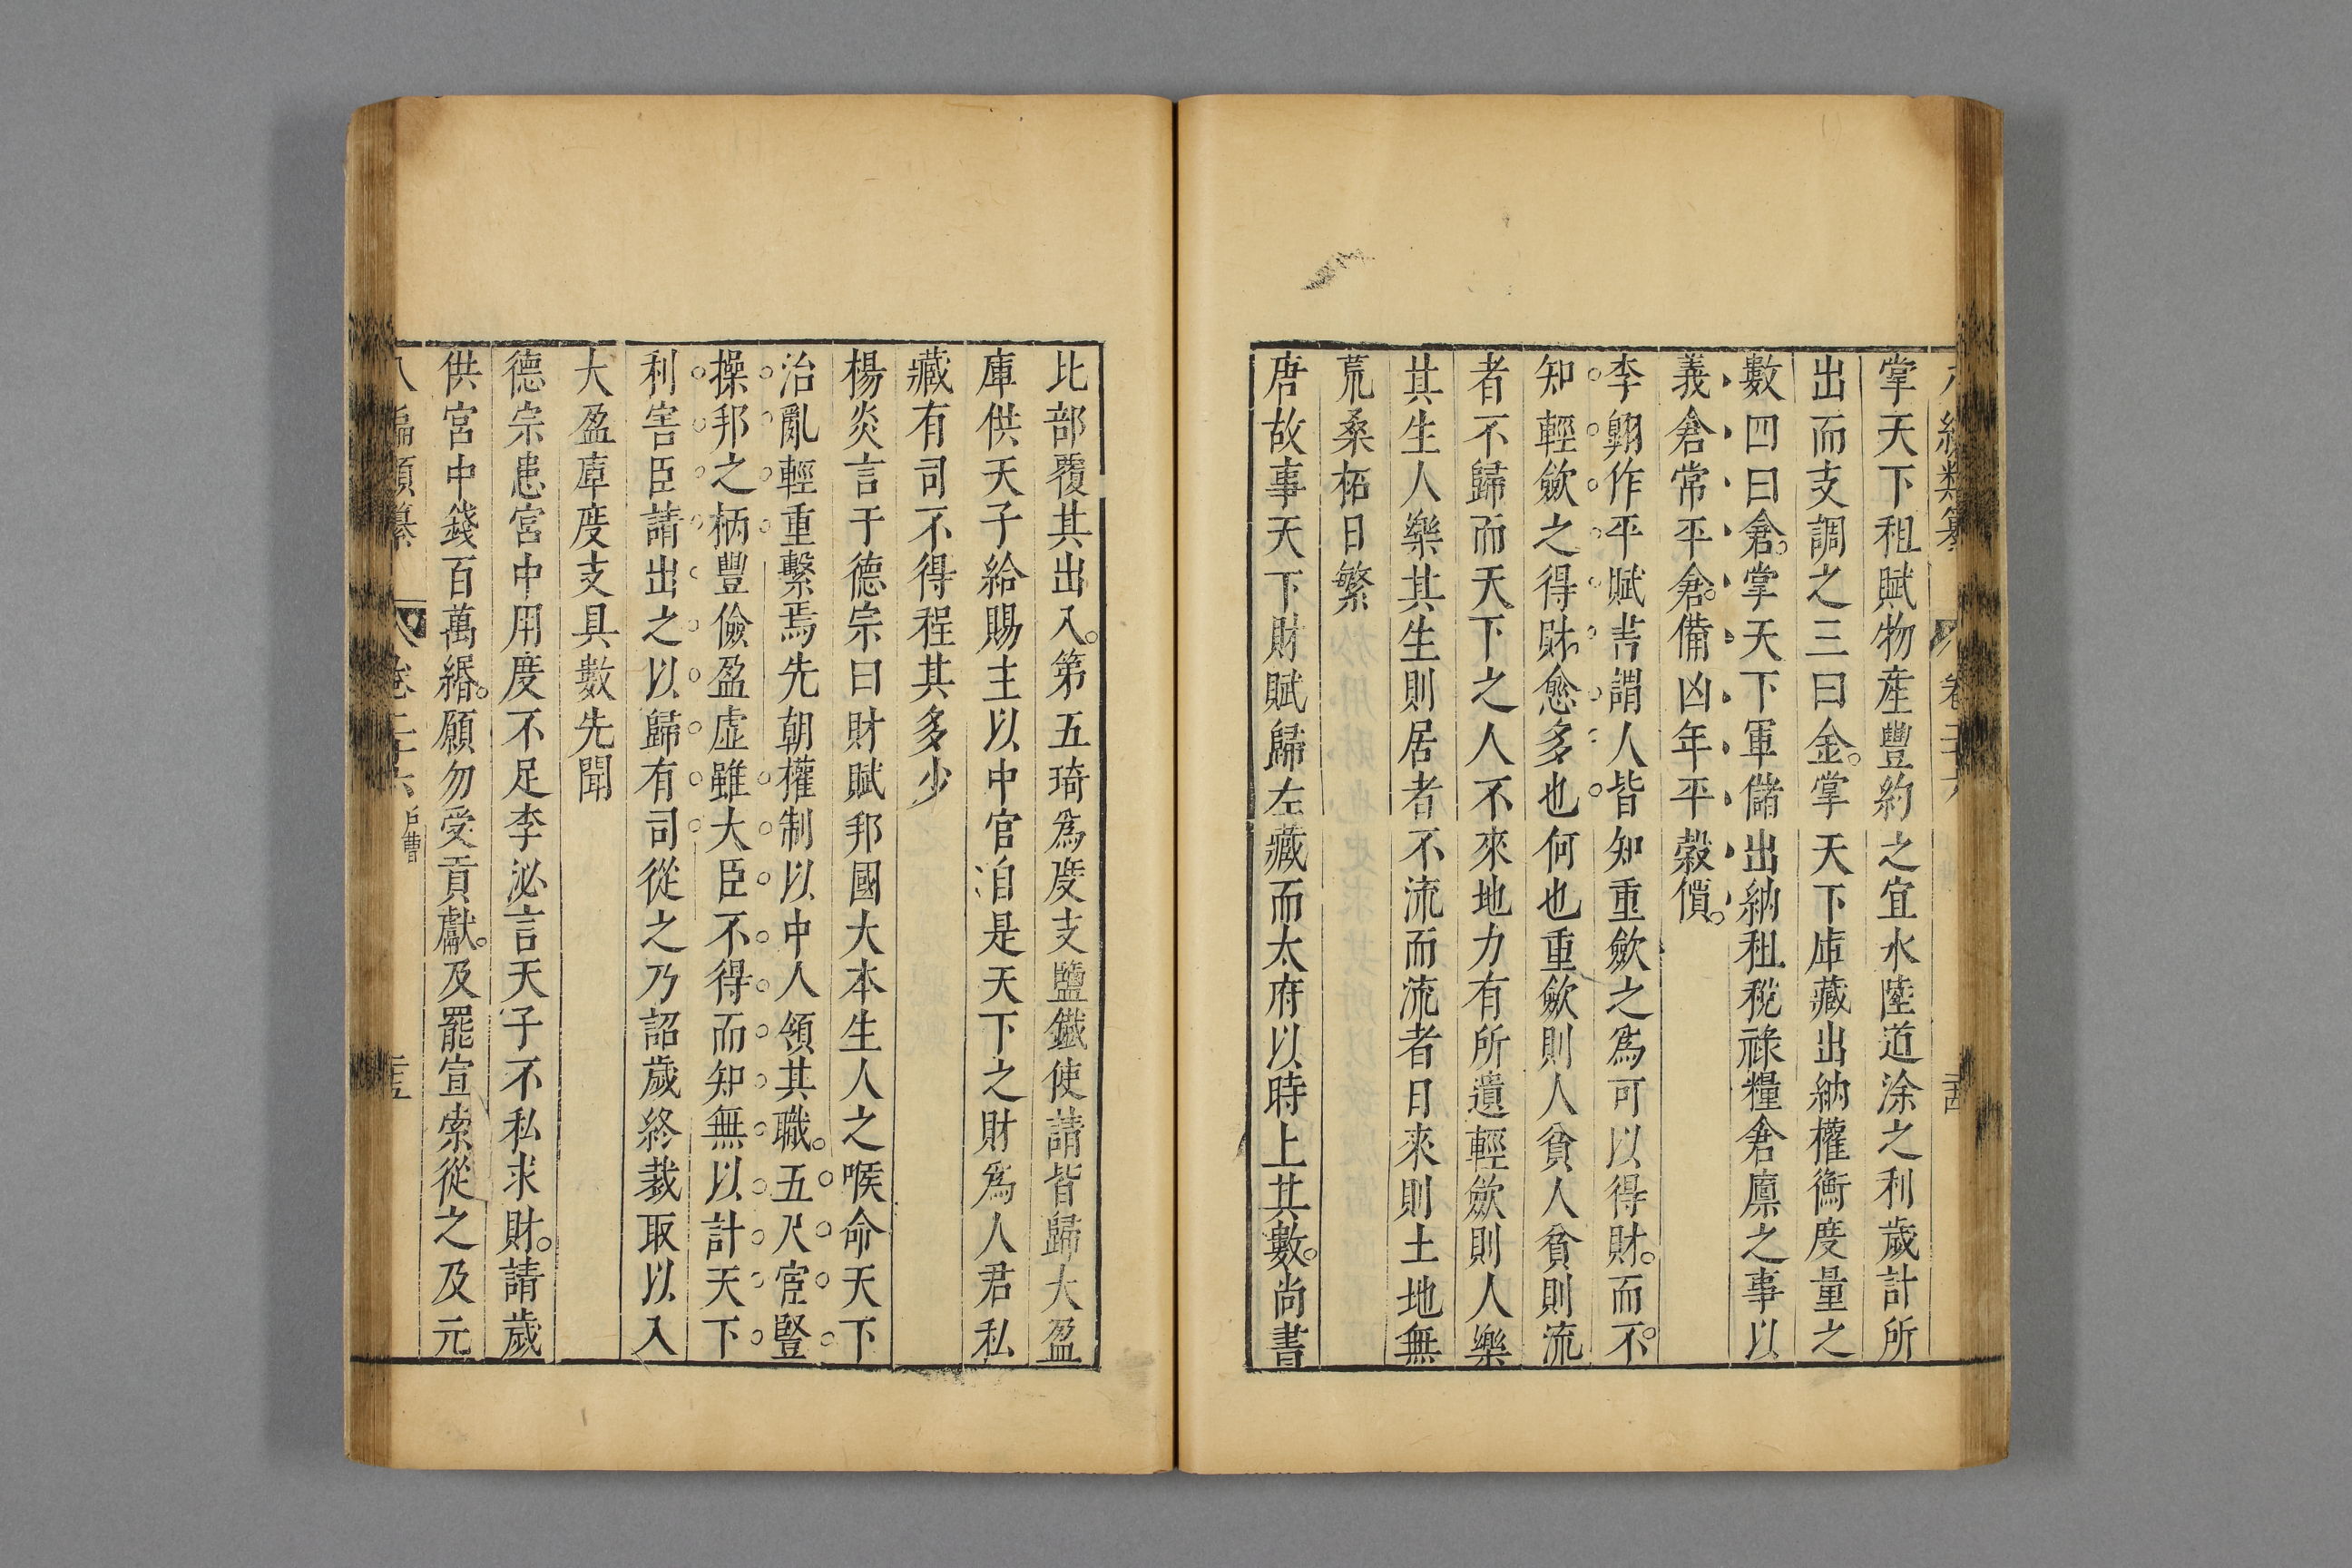 掌天下租賦物産豐約之宜水陸道涂之利歲計所
出而支調之三曰金。掌天下庫藏出納權衡度量之
數四曰倉。掌天下軍儲出納租稅祿糧倉廩之事以
義倉常平倉。備凶年平糓價。
李翺作平賦書謂人皆知重歛之爲可以得財。而不
知輕歛之得財愈多也何也重歛則人貧人貧則流
者不歸而天下之人不來地力有所遺輕歛則人樂
其生人樂其生則居者不流而流者日來則土地無
荒桑柘日繁
唐故事天下財賦歸左藏而太府以時上其數。尚書
比部覆其出入。第五琦爲度支鹽鐵使請皆歸大盈
庫供天子給賜主以中官自是天下之財爲人君私
藏有司不得程其多少
楊炎言于德宗曰財賦邦國大本生人之喉命天下
治亂輕重繫焉先朝權制以中人領其職。五尺宦豎
操邦之柄豐儉盈虛雖大臣不得而知無以計天下
利害臣請出之以歸有司從之乃詔歲終裁取以入
大盈庫度支具數先聞
德宗患宮中用度不足李泌言天子不私求財。請歲
供宮中錢百萬緡。願勿受貢獻。及罷宣索從之及元
八編類纂 卷二十六 戶曹